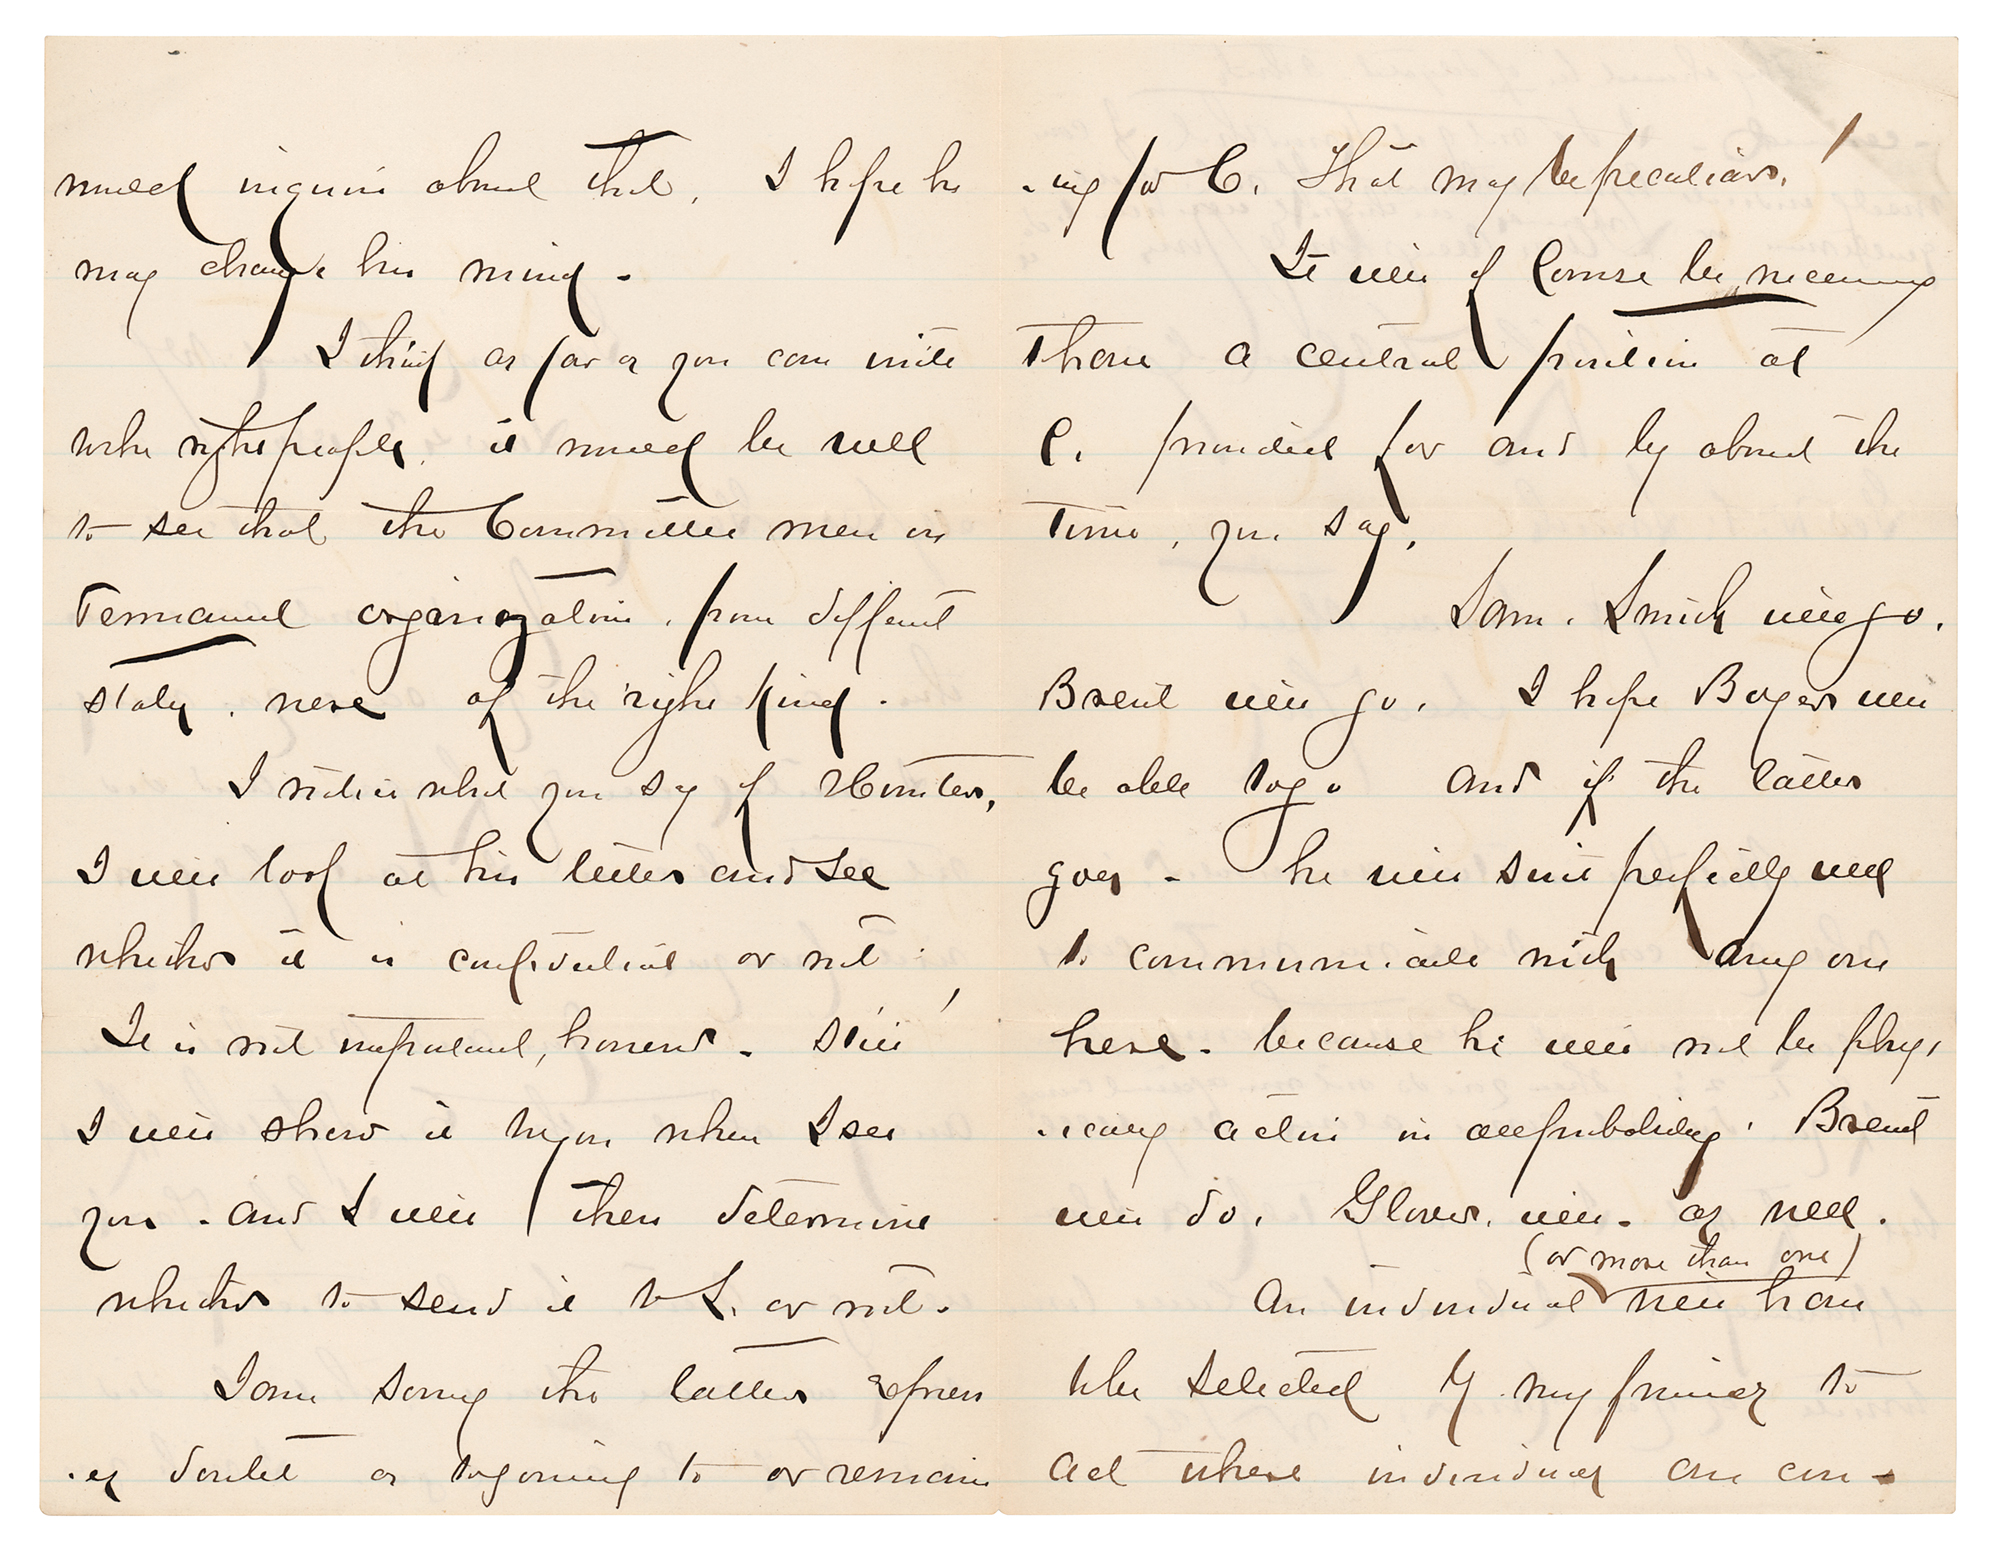 would inquire about that. I hope he
may change his mind -
I think as far as you can unite
with the right people, it would be well
to see that the Committee men in
Permanent organization, from different
states, were of the right kind.
I notice what you say of Hunter,
I will look at his letter and see
whether it is confidential or not.
It is not important, however - Still
I will show it to you when I see
you - and I will then determine
whether to send it to L. or not.
I am sorry the latter express
es doubt as to going to or remain
ing for C. That may be peculiar!
It will of course be necessary
to have a central position at
C. provided for and by about the
time, you say.
Sam. Smith will go.
Brent will go. I hope Bogers will
be able to go and if the latter
goes - he will suit perfectly well
to communicate with any one
here - because he will not be phys
ically active in all probability. Brent
will do. Glover, will - as well.
(or more than one)
An individual will have
to be selected by my friends to
act where individuals are con-